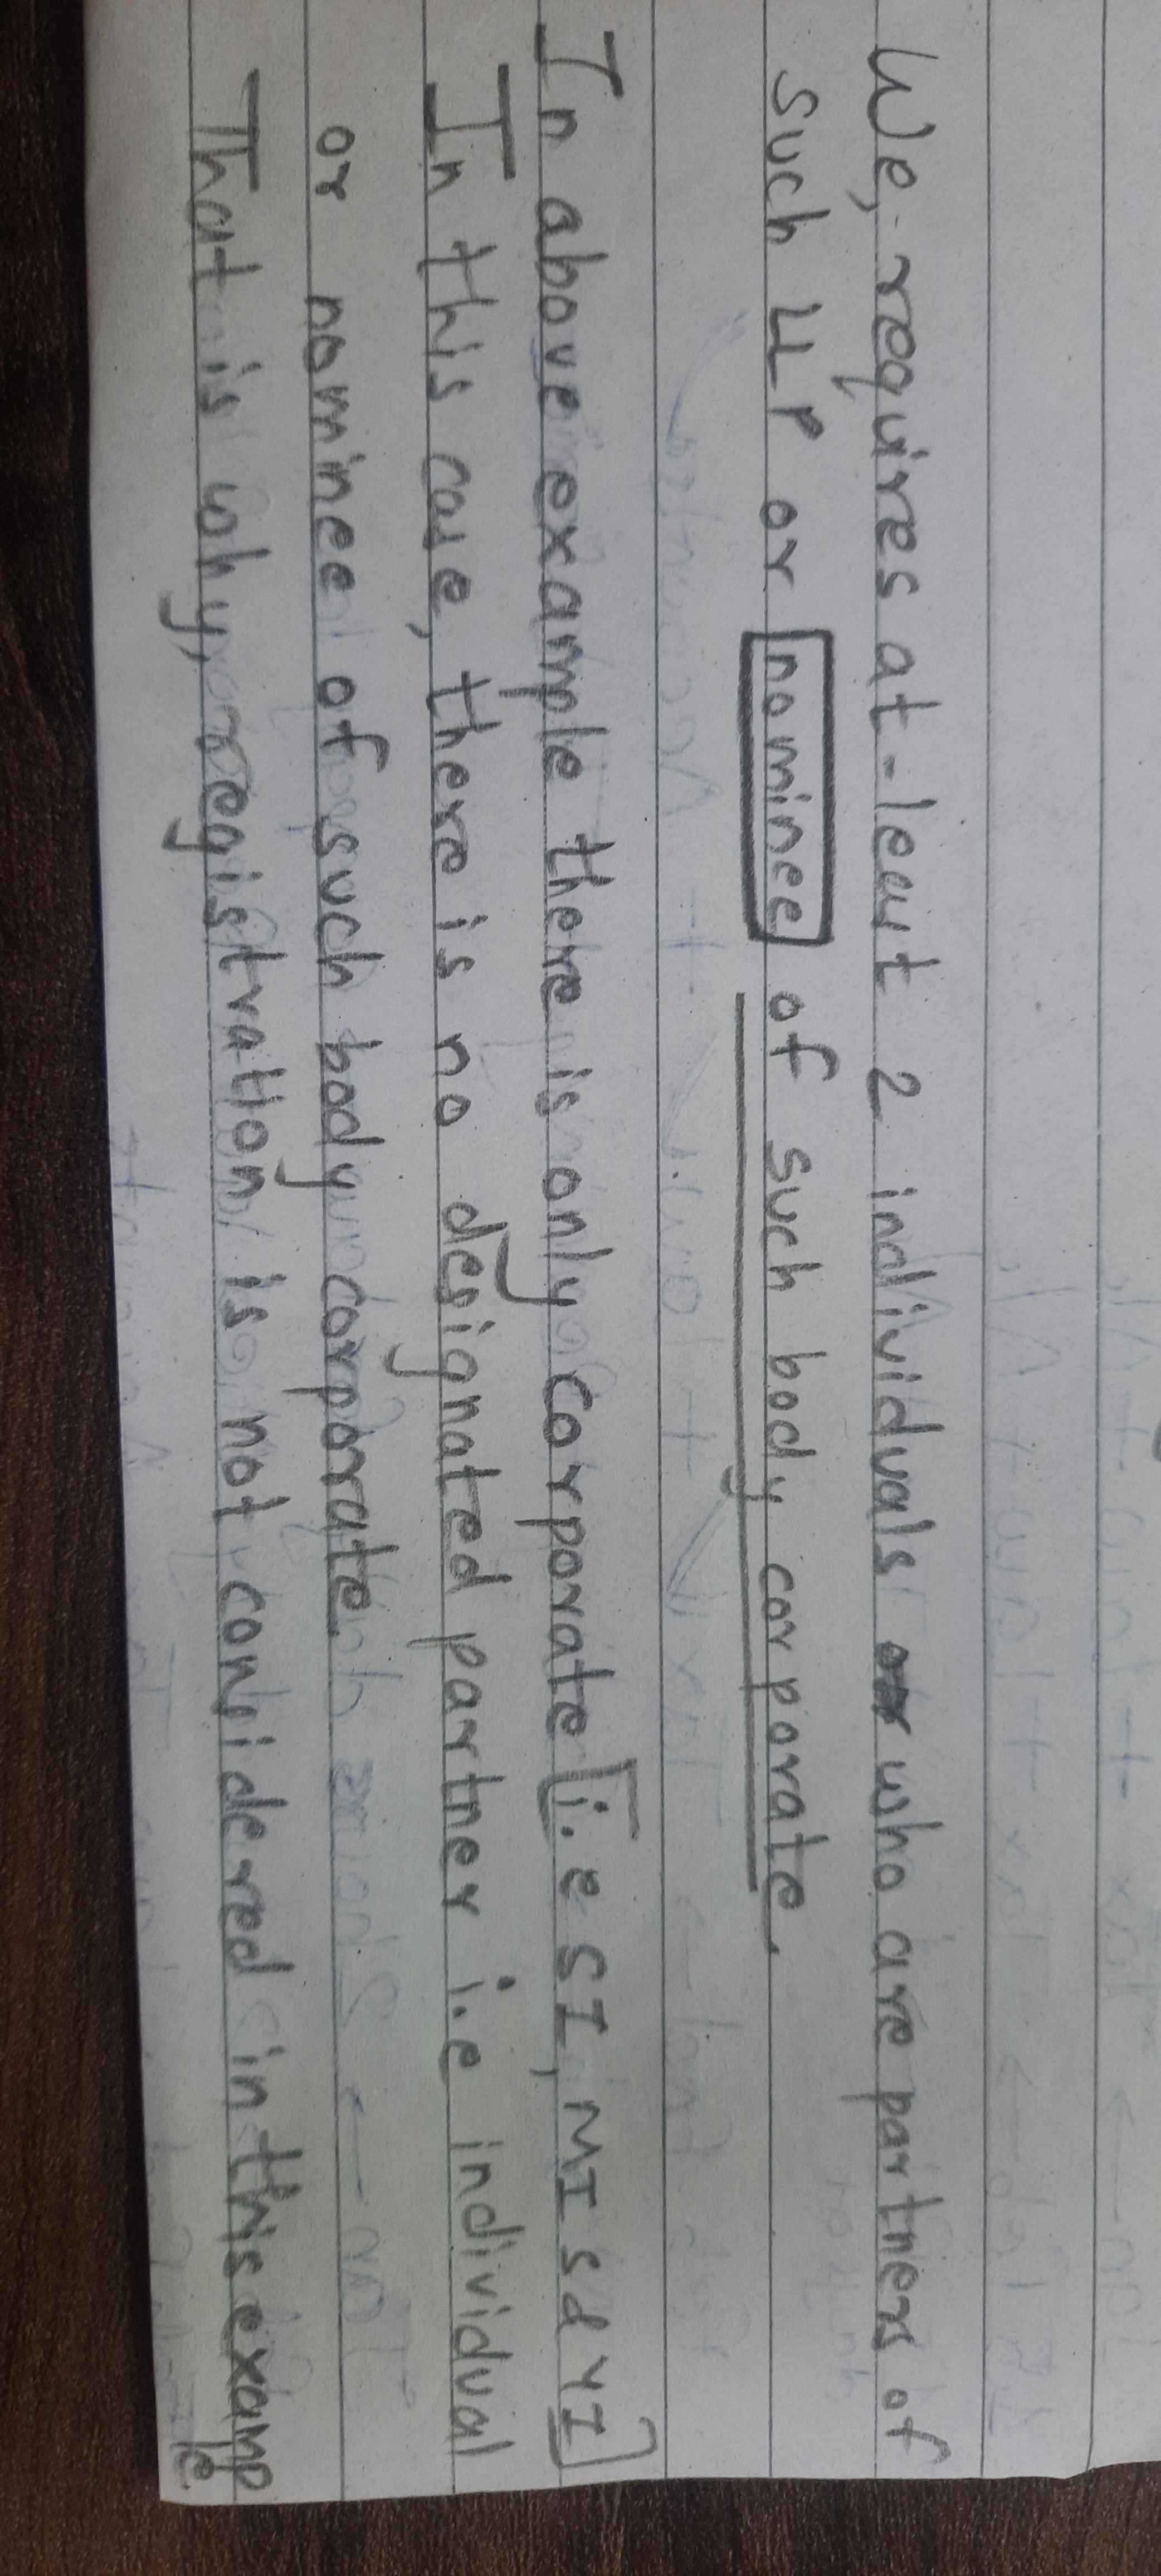 We, requires at-least 2 individuals who are partners of
such LLP or nominee of such body corporate.
In above example there is only corporate [i.e SI, MI sd YI]
In this case, there is no designated partner i.e individual
or nominee of such body corporate.
That is why, registration is not considered in this example